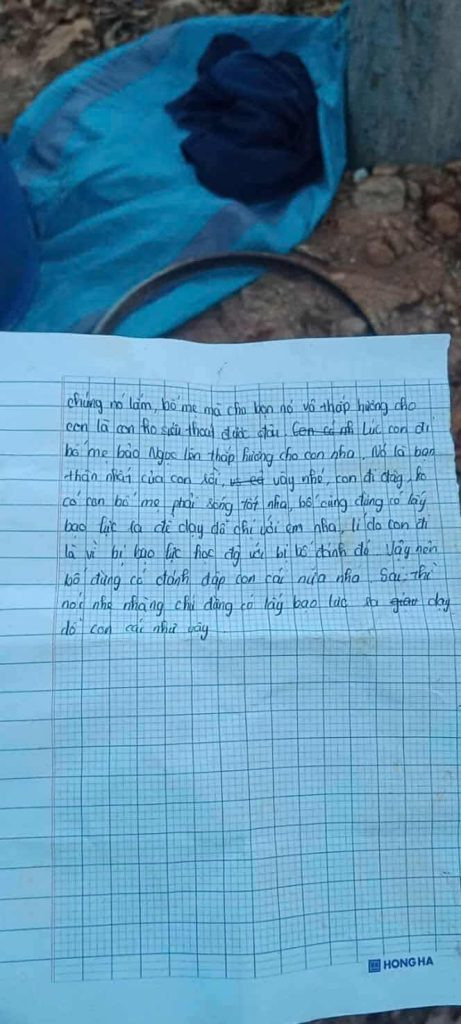 chúng nó lắm, bố mẹ mà cho bọn nó vô thắp hương cho
con là con ko siêu thoát được đâu. Lúc con đi
bố mẹ bảo Ngọc lên thắp hương cho con nha. Nó là bạn
thân nhất của con rồi, vậy nhé, con đi đây, ko
có con bố mẹ phải sống tốt nha, bố cũng đừng có lấy
bạo lực ra để dạy dỗ chị với em nha, lí do con đi
là vì bị bạo lực học đg với bị bố đánh đó. Vậy nên
bố đừng có đánh đập con cái nữa nha. Sai thì
nói nhẹ nhàng chứ đừng có lấy bạo lực ra dạy
dỗ con cái như vậy.
HONG HA